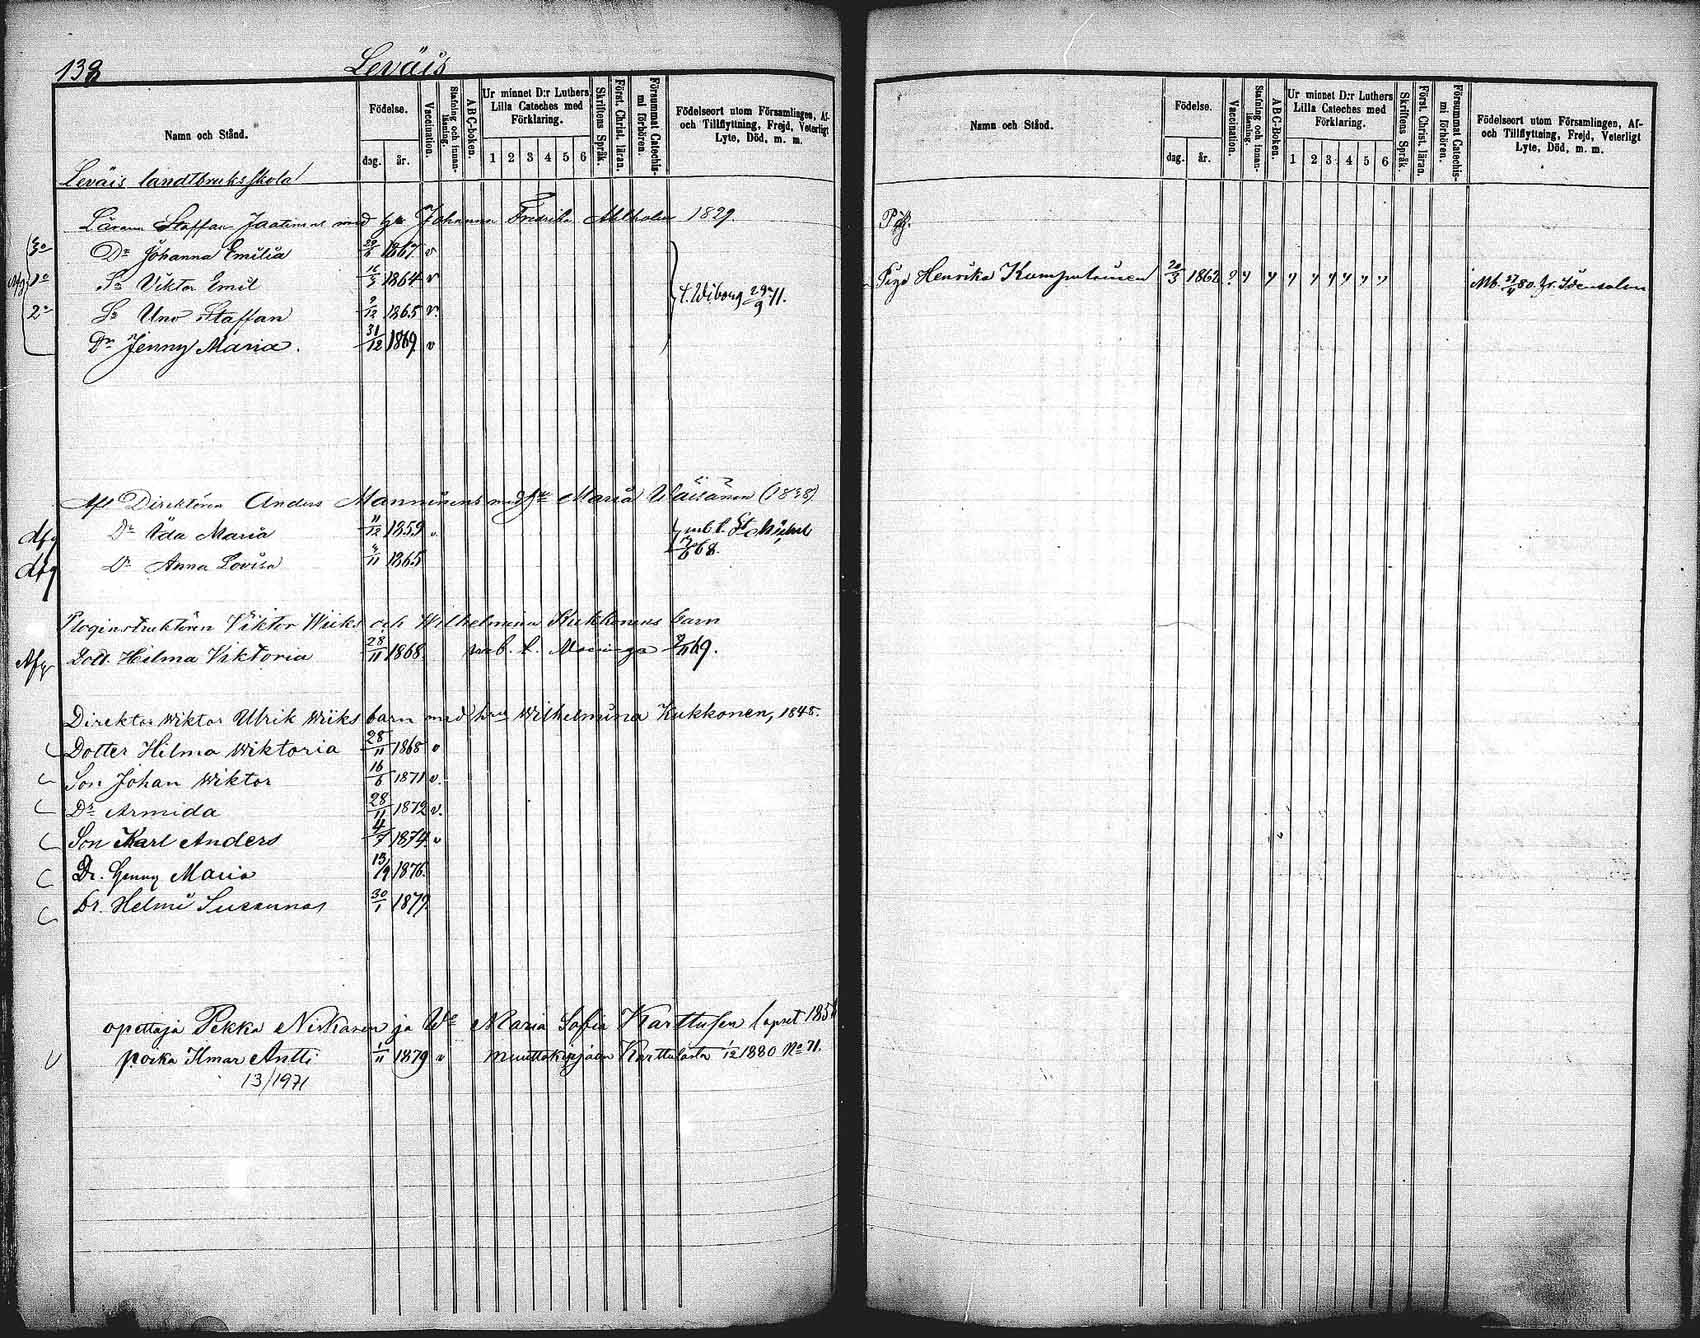 138
Leväis
Namn och Stånd.
Födelse.
dag.
år.
Vaccination.
Stafning och innan-läsning.
ABC-boken.
Ur minnet D:r Luthers Lilla Cateches med Förklaring.
1 2 3 4 5 6
Skriftens Språk.
Först. Christ. läran.
Försummat Catechismi förhören.
Födelseort utom Församlingen, Af- och Tillflyttning, Frejd, Veterligt Lyte, Död, m. m.
Leväis landtbruksskola
Läraren Staffan Jaatinens med Johanna Fredrika Ahlholm 1829.
3° Dr Johanna Emilia 1867 v
Afg 1° Sn Viktor Emil 1864 v
2° Sn Uno Staffan 9/12 1865 v.
Dr Jenny Maria. 31/12 1869 v
t. Wiborg 29/9 71.
Afl Direktören Anders Manninens med Maria Väisänen (1838)
Afg Dr Ida Maria 11/12 1859 v.
Afg Dr Anna Lovisa 1865
mb t. St Michel 68.
Ploginstruktören Viktor Wiiks och Wilhelmina Kukkonens barn
Afg Dott. Hilma Viktoria 28/11 1868. mb. t. 69.
Direktor Wiktor Ulrik Wiiks barn med hru Wilhelmina Kukkonen, 1845.
Dotter Hilma Wiktoria 28/11 1868 v
Son Johan Wiktor 16/6 1871 v.
Dr Armida 28/11 1872 v.
Son Karl Anders 4/7 1874 v
Dr. Jenny Maria 13/9 1876.
Dr. Helmi Susanna 30/1 1879.
opettaja Pekka Niskanen ja Wo Maria Sofia Karttusen lapset 1854
poika Ilmar Antti 1/11 1879 v muuttokirjalla Karttulasta 1/12 1880 No 71.
13/1971
Namn och Stånd.
Födelse.
dag.
år.
Vaccination.
Stafning och innan-läsning.
ABC-Boken.
Ur minnet D:r Luthers Lilla Cateches med Förklaring.
1 2 3 4 5 6
Skriftens Språk.
Först. Christ. läran.
Försummat Catechismi förhören.
Födelseort utom Församlingen, Af- och Tillflyttning, Frejd, Veterligt Lyte, Död, m. m.
Pig.
Piga Henrika Kumpulainen 20/3 1862 ? y y y y y y y y Mb. 80. fr. Idensalmi